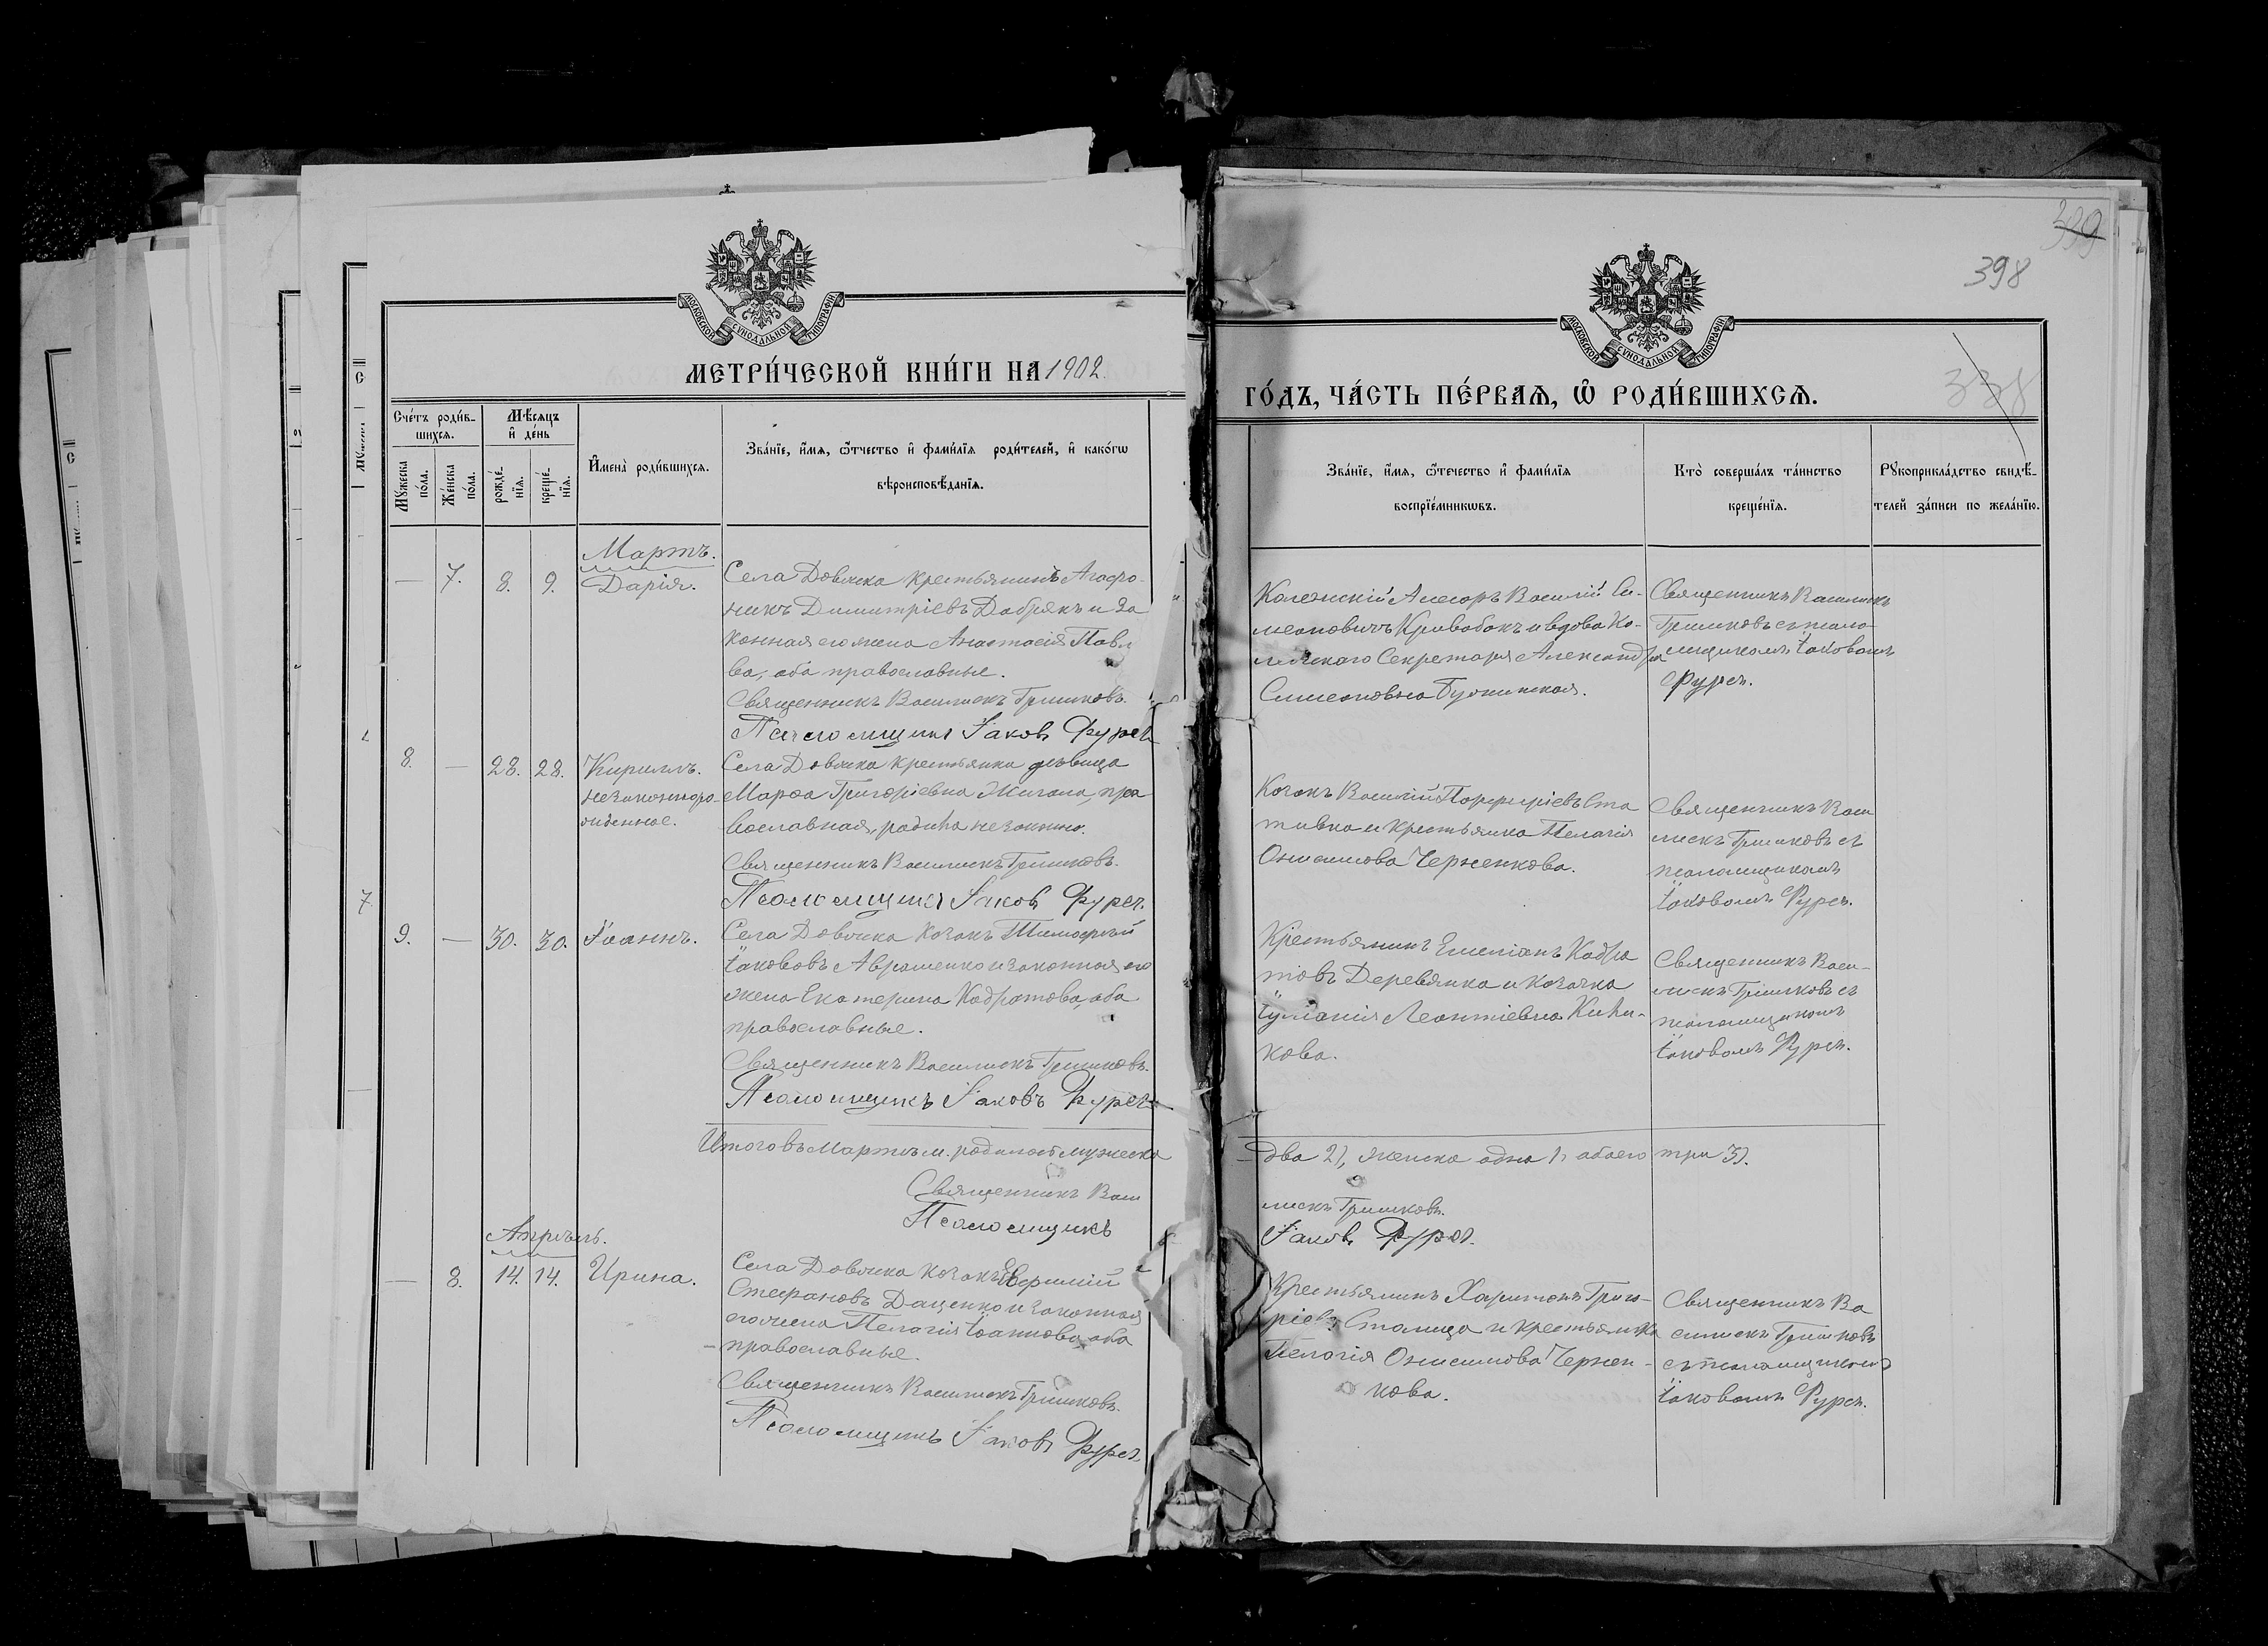 МОСКОВСКОЙ СУНОДАЛЬНОЙ ТИПОГРАФІИ
МЕТРИ́ЧЕСКОЙ КНИ́ГИ НА 1902.
Сче́тъ роди́в-
шихсѧ.
Мѣ́сѧцъ
и҆ де́нь
Мꙋ́жеска
по́ла.
Же́нска
по́ла.
рожде́-
нїѧ.
креще́-
нїѧ.
И҆мена̀ роди́вшихсѧ.
Зва́нїе, и҆́мѧ, ѻ҆́тчество и҆ фами́лїѧ роди́телей, и҆ како́гѡ
вѣроисповѣ́данїѧ.
Мартъ.
— 7. 8. 9. Дарія.
Села Довжика крестьянинъ Агафо-
никъ Димитріевъ Добрякъ и за
конная его жена Анастасія Павл
ва, оба православные.
Священникъ Василискъ Гришковъ.
Псаломщикъ Іаковъ Фурсъ
8. — 28. 28. Кириллъ.
незаконноро-
жденное.
Села Довжика крестьянка дѣвица
Марѳа Григоріевна Жигала, пра
вославная, родила незаконно.
Священникъ Василискъ Гришковъ.
Псаломщикъ Іаковъ Фурсъ.
9. — 30. 30. Іоаннъ.
Села Довжика козакъ Тимоѳей
Іакововъ Авраменко и законная его
жена Екатерина Кодратова, оба
православные.
Священникъ Василискъ Гришковъ.
Псаломщикъ Іаковъ Фурсъ
Итого въ Мартѣ м. родилось мужеска
Священникъ Васи
Псаломщикъ
Апрѣль.
— 8. 14. 14. Ирина.
Села Довжика козакъ
Стефановъ Даценко и законная
его жена Пелагія Іоаннова, оба
православные.
Священникъ Василискъ Гришковъ.
Псаломщикъ Іаковъ Фурсъ.
339
398
338
МОСКОВСКОЙ СУНОДАЛЬНОЙ ТИПОГРАФІИ
ГО́ДЪ, ЧА́СТЬ ПЕ́РВАѦ, Ѡ҆ РОДИ́ВШИХСѦ.
Зва́нїе, и҆́мѧ, ѻ҆те́чество и҆ фами́лїѧ
воспрїе́мникѡвъ.
Кто̀ соверша́лъ та́инство
креще́нїѧ.
Рꙋкоприкла́дство свидѣ́-
телей за́писи по жела́нїю.
Колежскій Асесоръ Василій Си-
меоновичъ Кривобокъ и вдова Ко-
лежскаго Секретаря Александра
Симеоновна
Священникъ Василискъ
Гришковъ съ псало
мщикомъ Іаковомъ
Фурсъ.
Козакъ Василій Порфиріевъ Ста
тивка и крестьянка Пелагія
Онисимова Черненкова.
Священникъ Васи
лискъ Гришковъ съ
псаломщикомъ
Іаковомъ Фурсъ.
Крестьянинъ Емеліанъ Кодра
товъ Деревянка и козачка
Іуліанія Леонтіевна
кова.
Священникъ Васи-
лискъ Гришковъ съ
псаломщикомъ
Іаковомъ Фурсъ.
два 2), женска одна 1, обоего три 3).
лискъ Гришковъ.
Іаковъ Фурсъ.
Крестьянинъ Харитонъ Григо-
ріевъ Столица и крестьянка
Пелагія Онисимова Чернен-
кова.
Священникъ Ва
силискъ Гришковъ
съ псаломщикомъ
Іаковомъ Фурсъ.